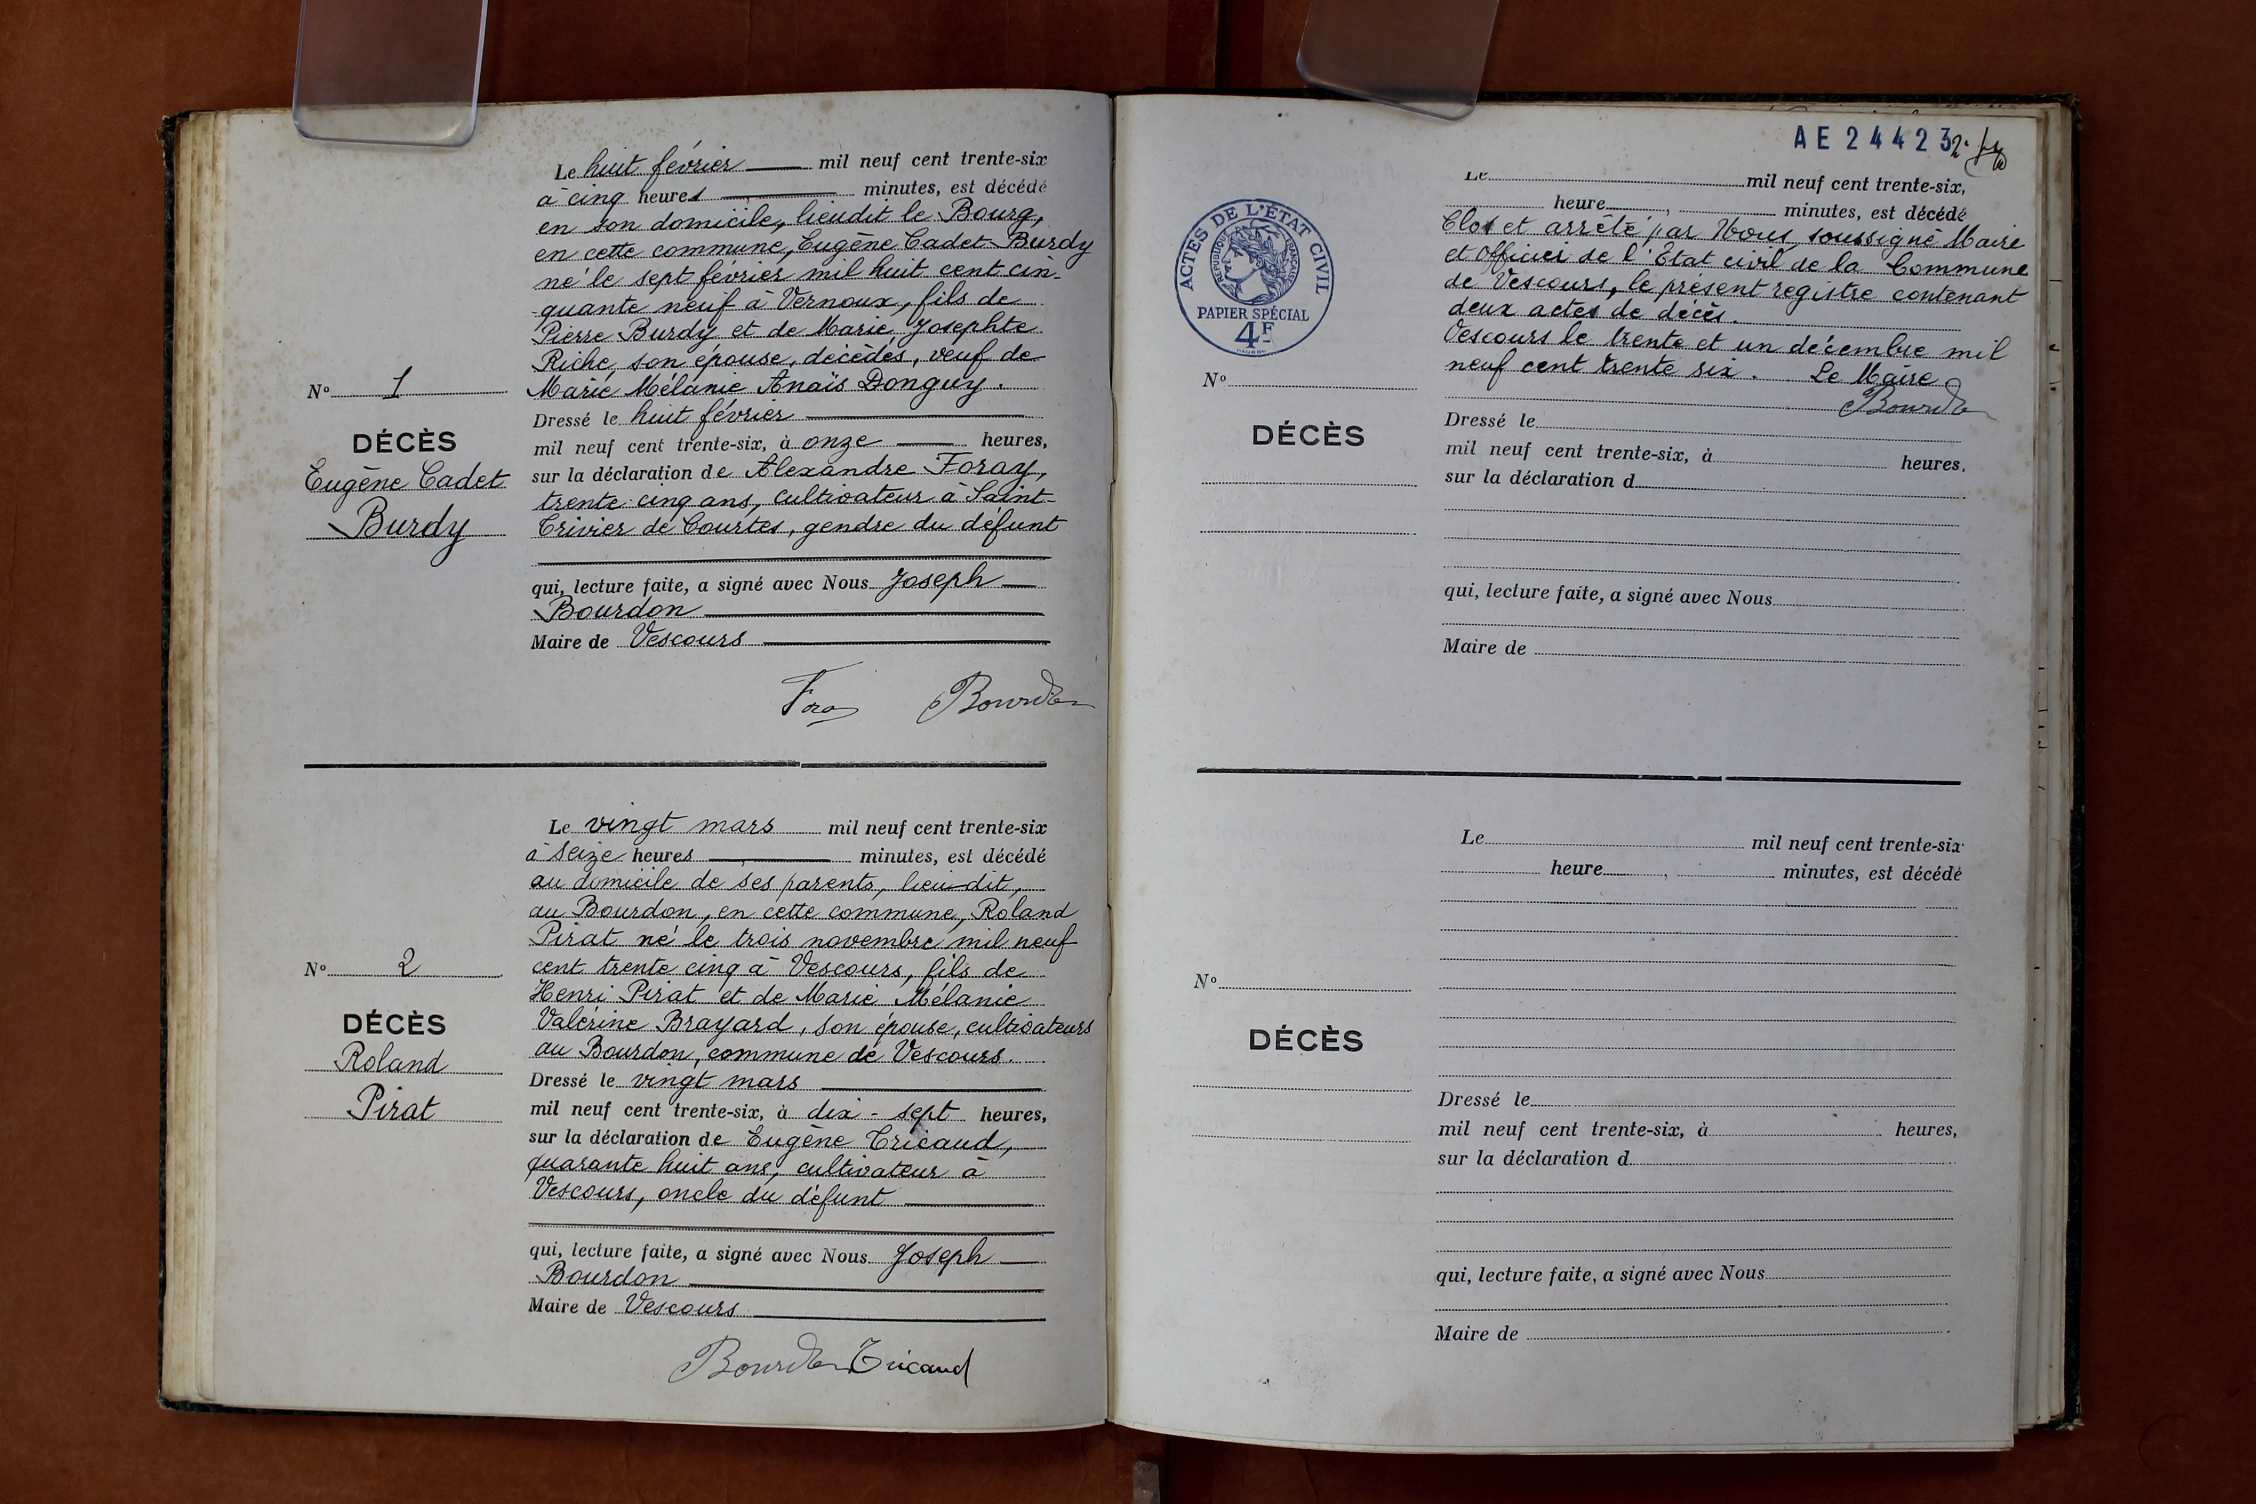 Le huit février mil neuf cent trente-six
à cinq heures, minutes, est décédé
en son domicile, lieudit le Bourg,
en cette commune, Eugène Cadet Burdy
né le sept février mil huit cent cin-
quante neuf à Vernoux, fils de
Pierre Burdy et de Marie Josephte
Riche, son épouse, décédés, veuf de
Marie Mélanie Anaïs Donguy.
Nº 1
DÉCÈS
Eugène Cadet
Burdy
Dressé le huit février
mil neuf cent trente-six, à onze heures,
sur la déclaration de Alexandre Foray,
trente cinq ans, cultivateur à Saint-
Trivier de Courtes, gendre du défunt
qui, lecture faite, a signé avec Nous Joseph
Bourdon
Maire de Vescours
Foray Bourdon
Le vingt mars mil neuf cent trente-six
à seize heures, minutes, est décédé
au domicile de ses parents, lieu-dit,
au Bourdon, en cette commune, Roland
Pirat né le trois novembre mil neuf
cent trente cinq à Vescours, fils de
Henri Pirat et de Marie Mélanie
Valérine Brayard, son épouse, cultivateurs
au Bourdon, commune de Vescours.
Nº 2
DÉCÈS
Roland
Pirat
Dressé le vingt mars
mil neuf cent trente-six, à dix-sept heures,
sur la déclaration de Eugène Tricaud,
quarante huit ans, cultivateur à
Vescours, oncle du défunt
qui, lecture faite, a signé avec Nous Joseph
Bourdon
Maire de Vescours
Bourdon Tricaud
AE 24423
2.
ACTES DE L'ÉTAT CIVIL
RÉPUBLIQUE FRANÇAISE
PAPIER SPÉCIAL
4F
Le mil neuf cent trente-six,
heure, minutes, est décédé
Clos et arrêté par Nous, soussigné Maire
et officier de l'Etat civil de la Commune
de Vescours, le présent registre contenant
deux actes de décès.
Vescours le trente et un décembre mil
neuf cent trente six. Le Maire
Bourdon
Nº
DÉCÈS
Dressé le
mil neuf cent trente-six, à heures,
sur la déclaration d
qui, lecture faite, a signé avec Nous
Maire de
Le mil neuf cent trente-six
heure, minutes, est décédé
Nº
DÉCÈS
Dressé le
mil neuf cent trente-six, à heures,
sur la déclaration d
qui, lecture faite, a signé avec Nous
Maire de